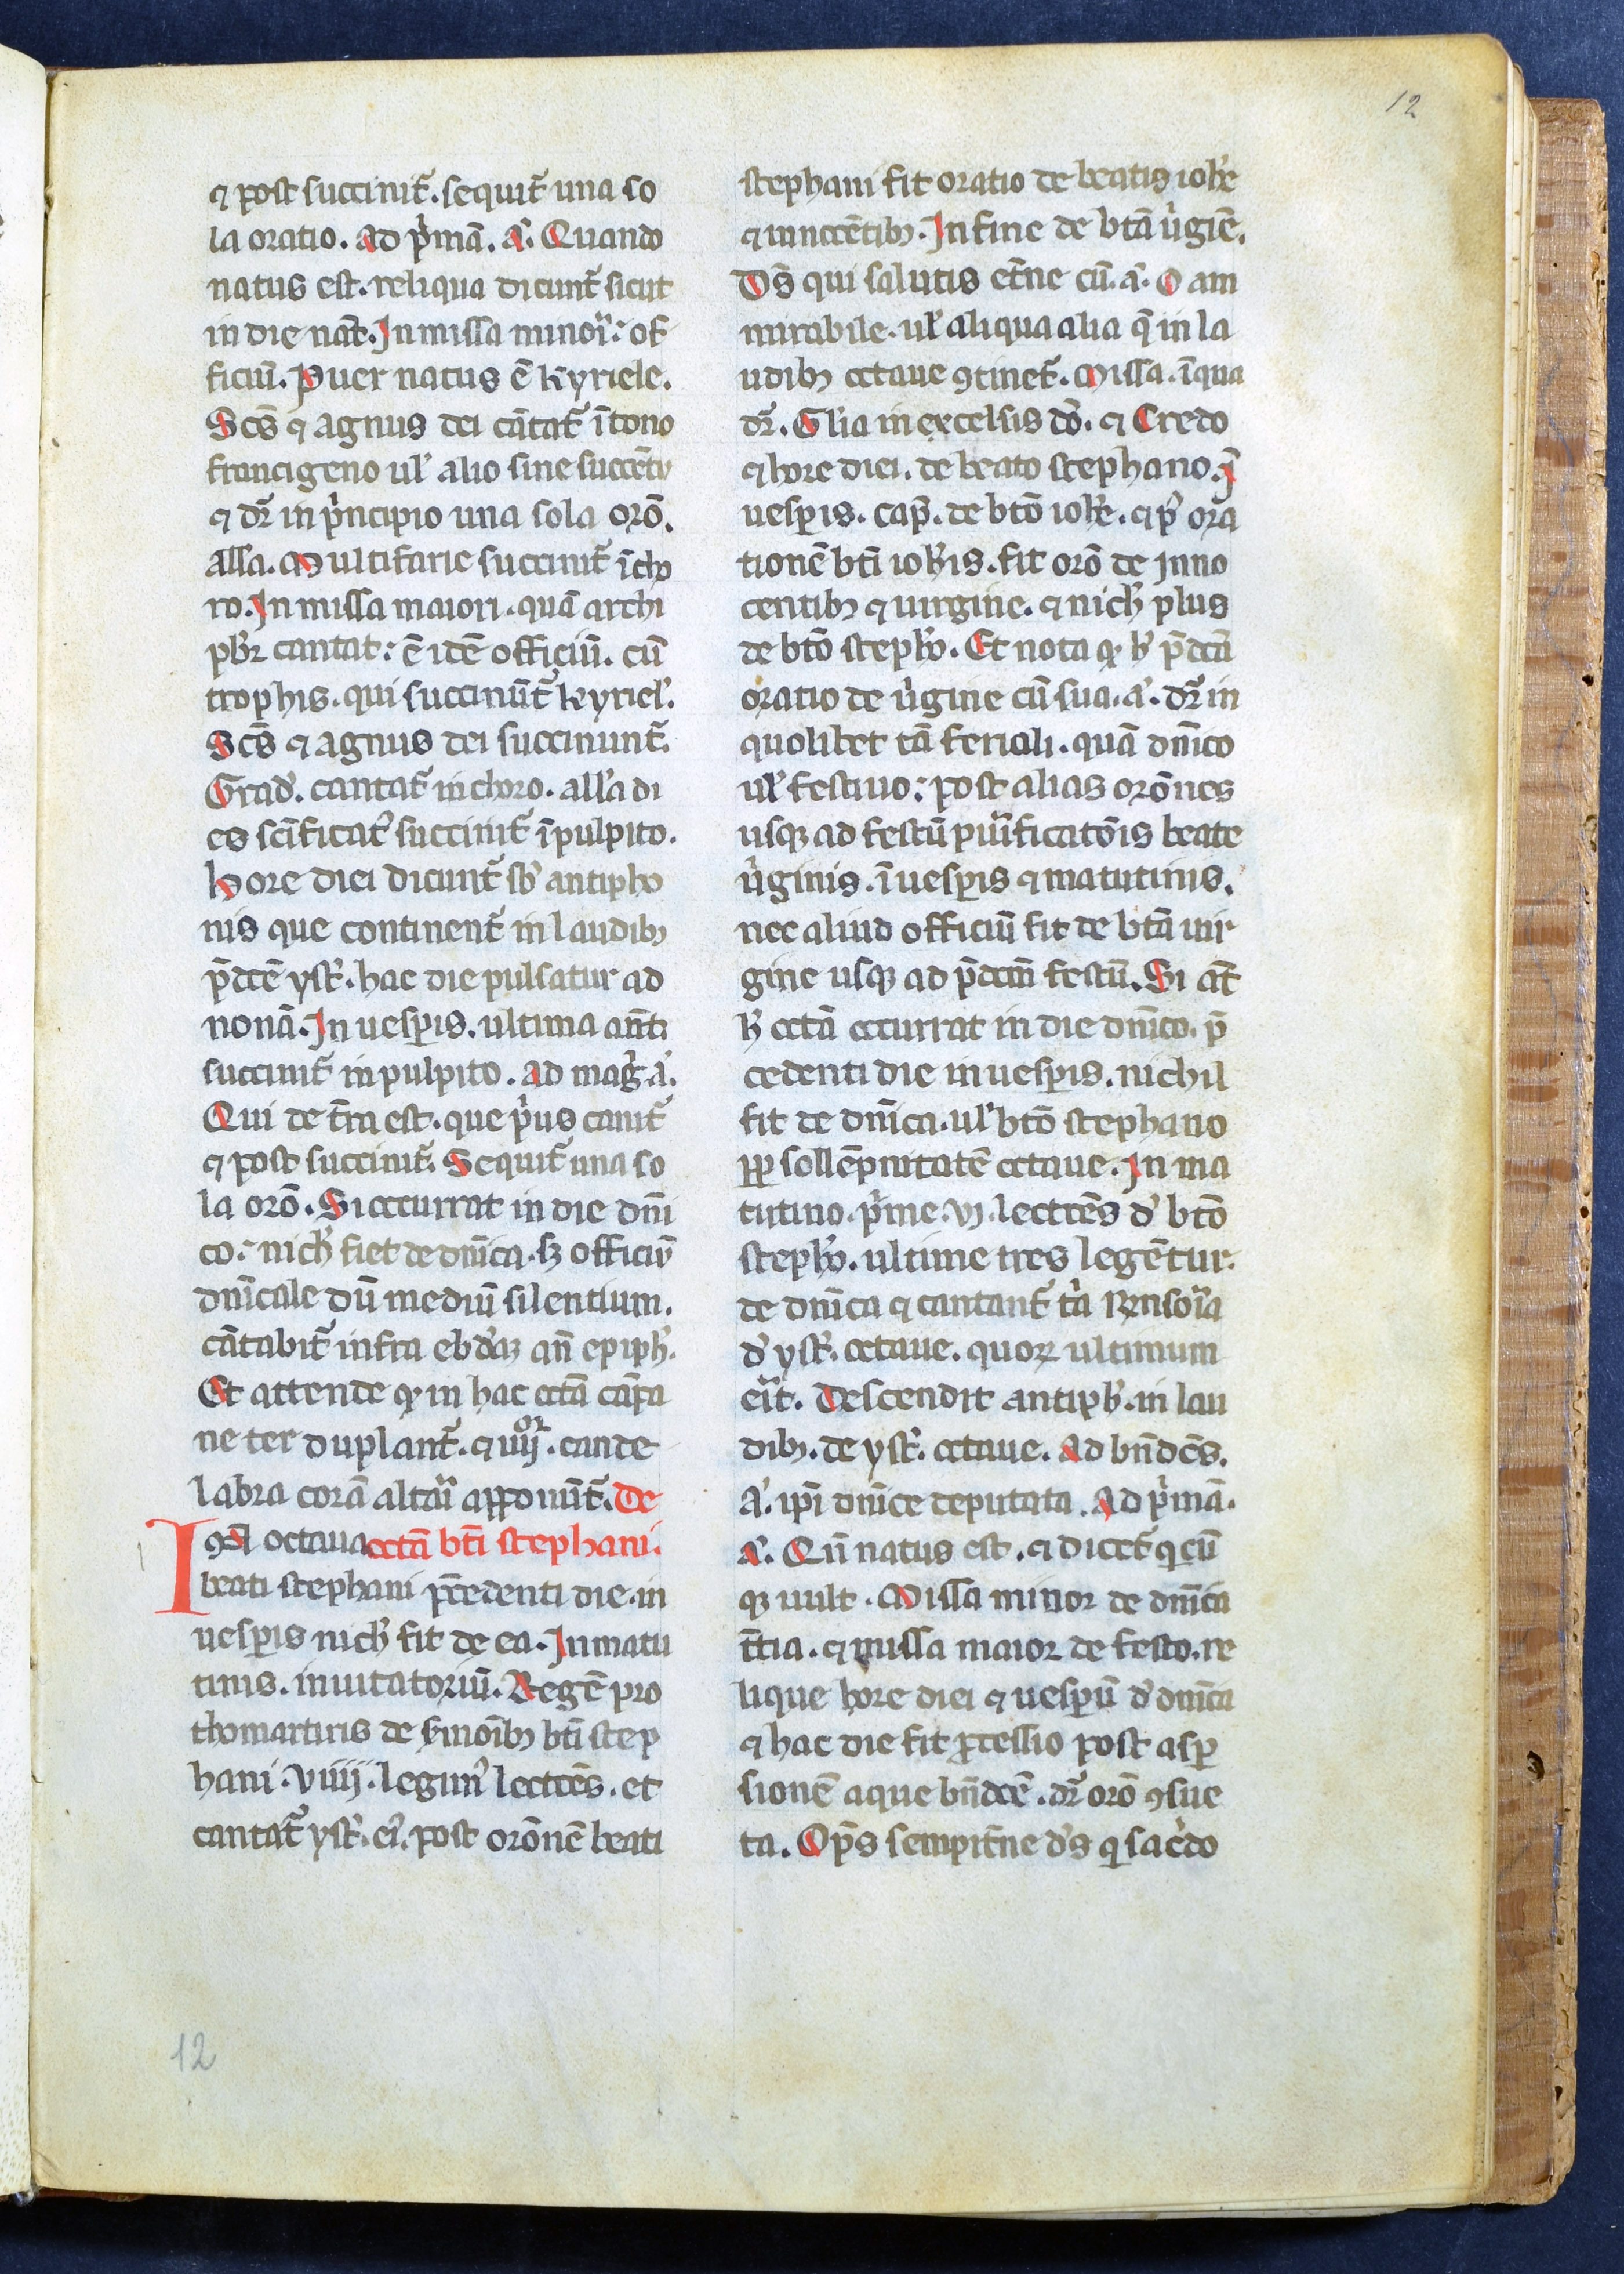 12
⁊ post succinit᷑. sequit᷑ una so
la oratio. Ad pͥmā. A͛. Quando
natus est. reliqua dicunt᷑ sicut
in die nat̄. In missa minoͥ: of
ficiū. Puer natus ē kyriele.
Scs̄ ⁊ agnus dei cātat᷑ ī tono
francigeno ul̓ alio sine succētu
⁊ dr̄ in pͥncipio una sola orō.
alla. Multifarie succinit᷑ ī cho
ro. In missa maiori. quā archi
pbr̄ cantat: ē idē officiū. cū
trophis. qui succinūt᷑ kyriel̓.
Scs̄ ⁊ agnus dei succinunt᷑.
Grad̓. cantat᷑ in choro. all̓a di
es scīficat᷒ succinit᷑ ī pulpito.
Hore diei dicunt᷑ sb̓ antipho
nis que continent᷑ in laudibꝫ
p̄dcē yst̓. hac die pulsatur ad
nonā. In uesꝑis. ultima ant̄i
succinit᷑ in pulpito. Ad mag̓. a͛.
Qui de t̄ra est. que pͥus canit᷑
⁊ post succinit᷑. Sequit᷑ una so
la orō. Si occurrat in die dn̄i
co: nich̓ fiet de dn̄ica. sꝫ officiū
dn̄icale dū mediū silentium.
cātabit᷑ infra ebd̓aꝫ an̄ epiph̓.
Et attende ꝙ in hac octā cāpa
ne ter duplant᷑. ⁊ iiijor. cande
labra corā altaͥ apponūt᷑. De
In octaua octā bt̄i stephani.
beati stephani p̄cedenti die. in
uesꝑis nich̓ fit de ea. In matu
tinis. inuitatoriū. Regē pro
thomartiris de s̓monibꝫ bt̄i step
hani. viiij. legun̓ lectcēs. et
cantat᷑ yst̓. ei᷒. post orōnē beati
stephani fit oratio de beatis ioh̓e
⁊ innocētibꝫ. In fine de btā uͥgiē.
Ds̄ qui salutis et̄ne cū. a͛. O am
mirabile. ul̓ aliqua alia q̄ in la
udibꝫ octaue ꝯtinet᷑. Missa. ī qua
dr̄. Gl̓ia in excelsis dō. ⁊ Credo
⁊ hore diei. de beato stephano. I̅
uesꝑis. cap̄. de btō ioh̓e. ⁊ p᷒ ora
tionē bt̄i ioh̓is. fit orō de Inno
centibꝫ ⁊ uirgine. ⁊ nich̓ plus
de btō steph̓o. Et nota ꝙ h̓ p̄dcā
oratio de uͥgine cū sua. a͛. dr̄ in
quolibet tā feriali. quā dn̄ico
ul̓ festiuo: post alias orōnes
usqꝫ ad festū puͥificatōis beate
uͥginis. ī uesꝑis ⁊ matutinis.
nec aliud officiū fit de btā uir
gine usqꝫ ad p̄dcm̄ festū. Si at̄
h̓ octā occurrat in die dn̄ico. p̄
cedenti die in uesꝑis. nichil
fit de dn̄ica. ul̓ btō stephano
ꝓꝑ sollēpnitatē octaue. In ma
tutino. pͥme. vj. lectcēs d̓ btō
steph̓o. ultime tres legētur.
de dn̄ica ⁊ cantant᷑ tͥa Rn̄soͥa
d̓ yst̓. octaue. quoꝝ ultimum
eͥit. Descendit antiph̓. in lau
dibꝫ. de yst̓. octaue. Ad bn̄dcs̄.
A͛. ip̄i dn̄ice deputata. Ad pͥmā.
A͛. Qn̄ natus est. ⁊ dicet᷑ qͥcū
qꝫ uult. Missa minor de dn̄ica
t̄tia. ⁊ missa maior de festo. re
lique hore diei ⁊ uesꝑū d̓ dn̄ica
⁊ hac die fit ꝓcessio post asꝑ
sionē aque bn̄dcē. dr̄ orō ꝯsue
ta. Op̄s sempit̄ne d̓s qͥ sac̓do
12